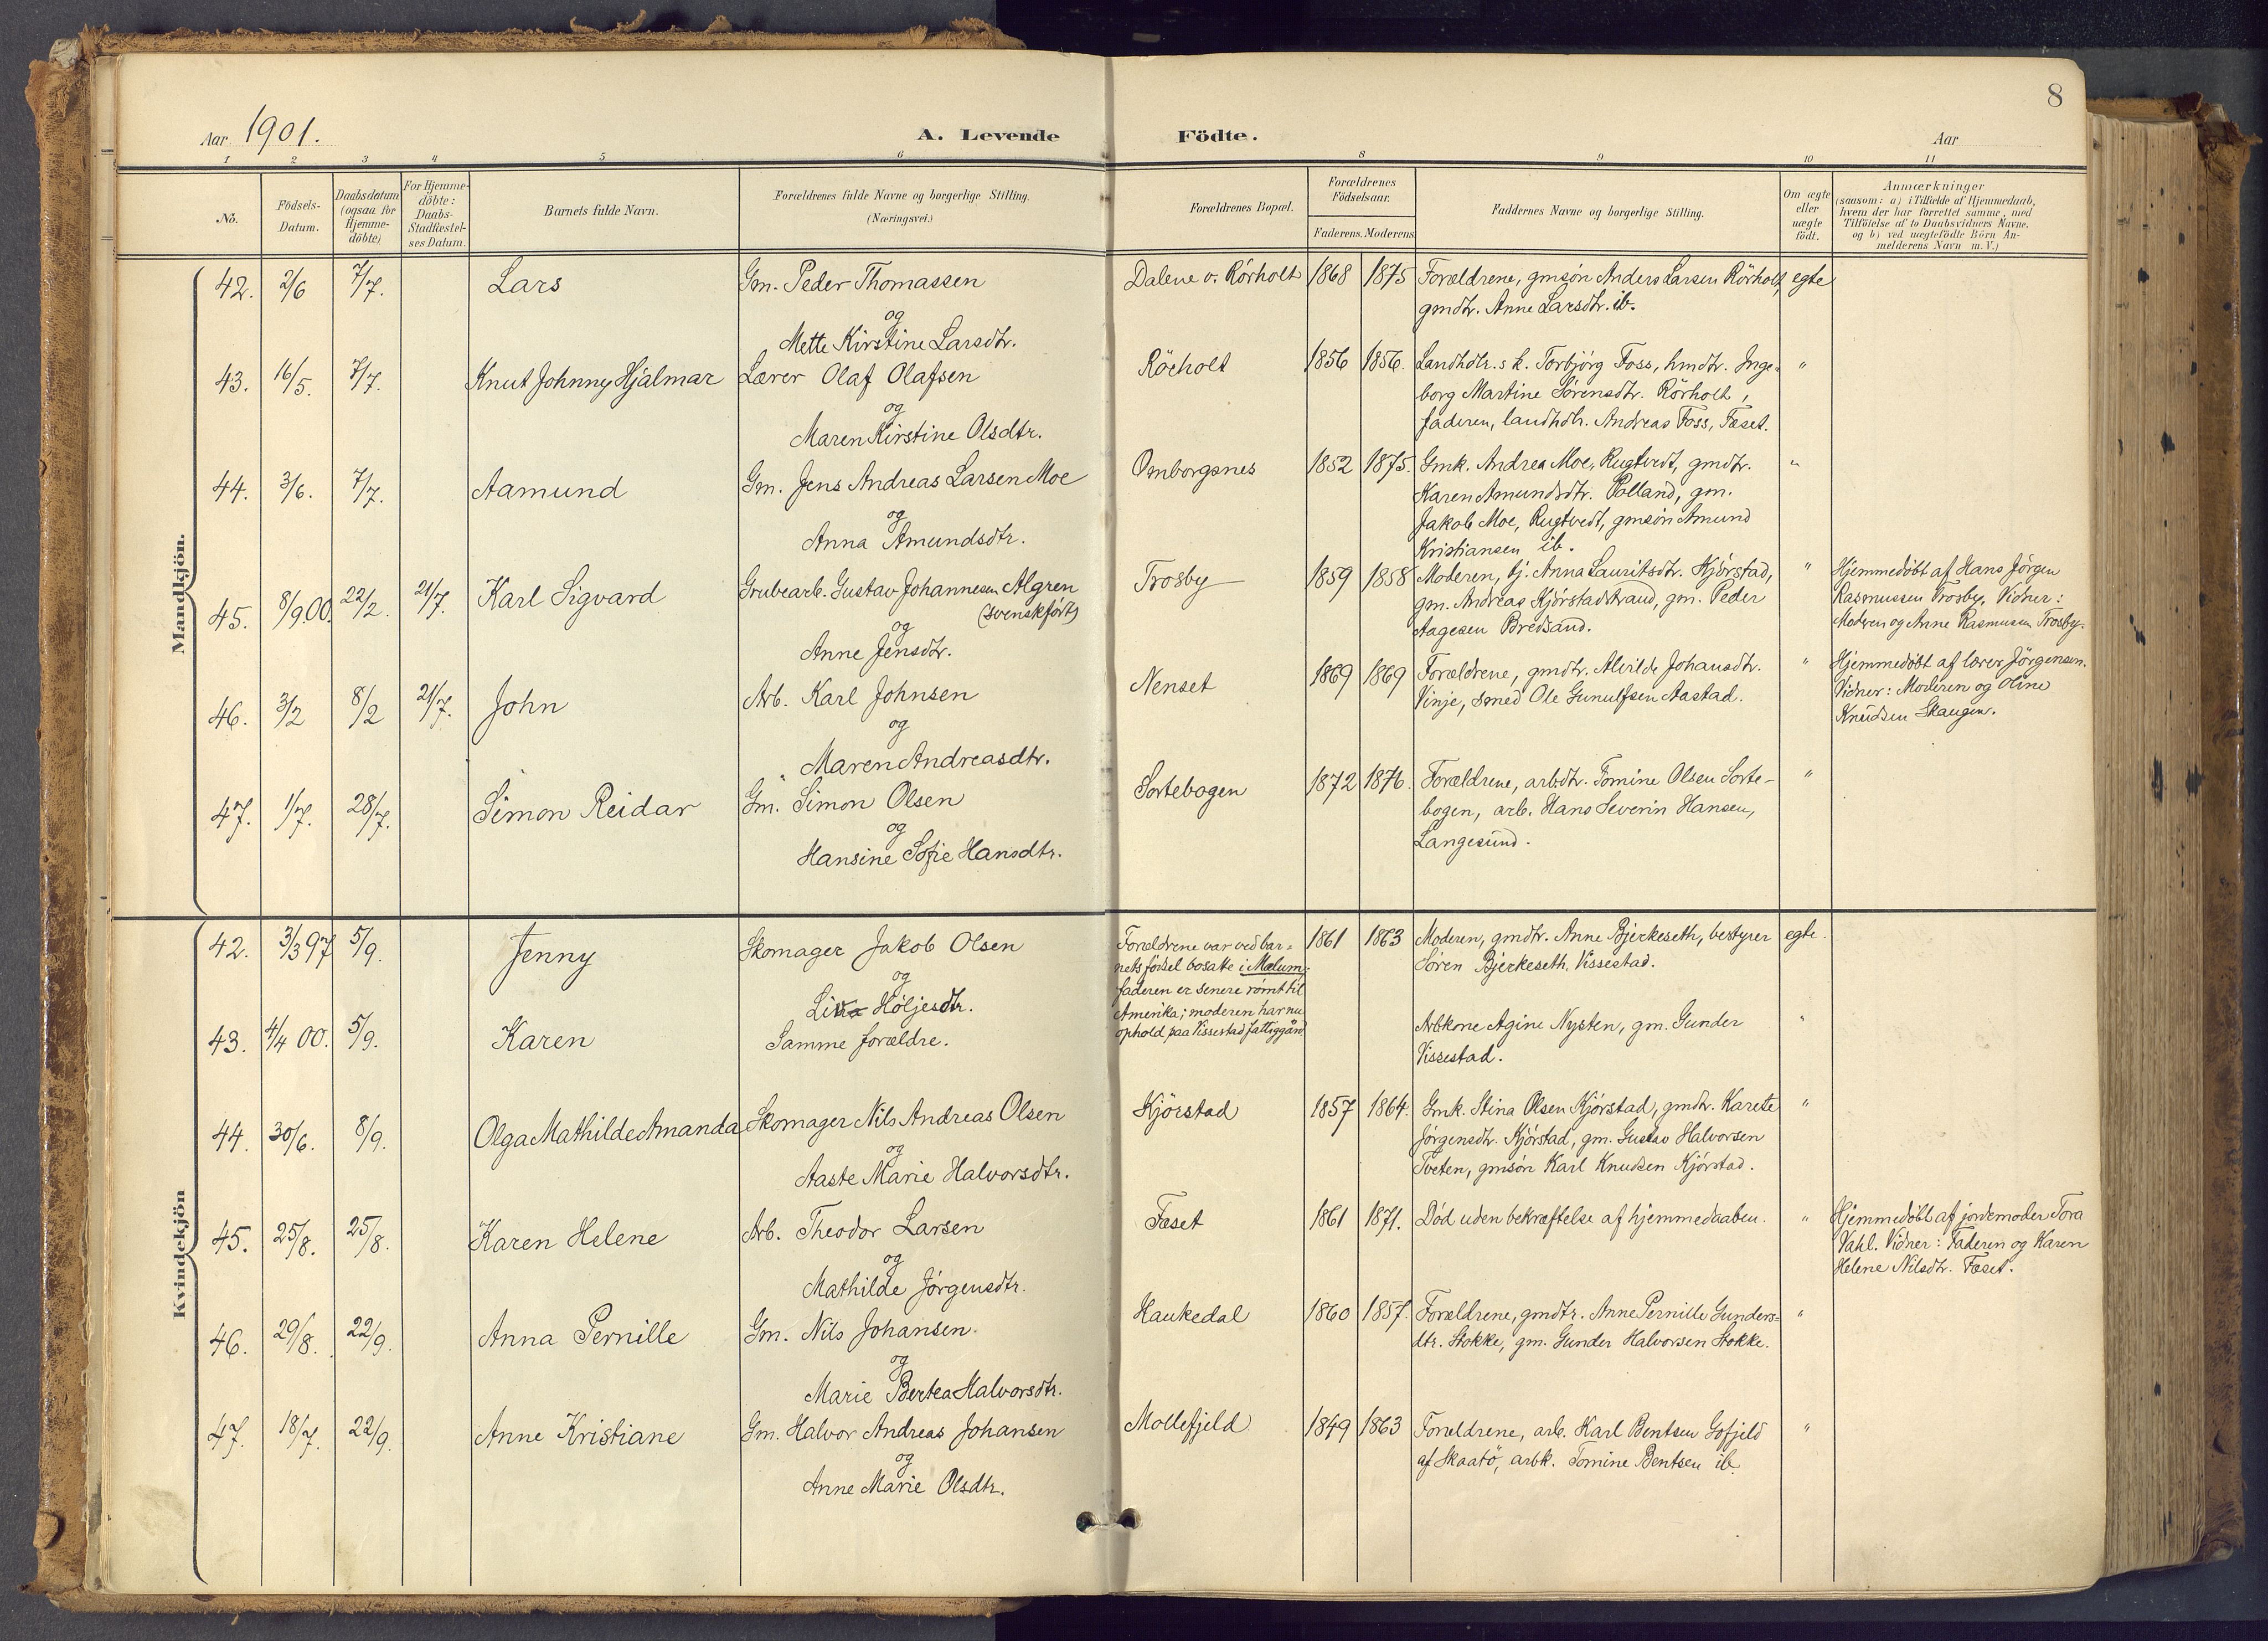 8
Aar 1901.
A. Levende Födte.
Aar
1 2 3 4 5 6 8 9 10 11
Nö.
Födsels-
Datum.
Daabsdatum
(ogsaa for
Hjemme-
döbte)
For Hjemme-
döbte:
Daabs-
Stadfæstel-
ses Datum.
Barnets fulde Navn.
Forældrenes fulde Navne og borgerlige Stilling.
(Næringsvei.)
Forældrenes Bopæl.
Forældrenes
Födselsaar.
Faderens. Moderens
Faddernes Navne og borgerlige Stilling.
Om ægte
eller
uægte
födt.
Anmærkninger
(saasom: a) i Tilfælde af Hjemmedaab,
hvem der har forrettet samme, med
Tilföielse af to Daabsvidners Navne.
og b) ved uægtefödte Börn An-
melderens Navn m.V.)
Mandkjön.
42. 2/6 7/7. Lars
Gm. Peder Thomassen
og
Mette Kirstine Larsdtr.
Dalene v. Rörholt 1868 1875
Forældrene, gmsön Anders Larsen Rörholt,
gmdtr. Anne Larsdtr. ib.
egte
43. 16/5. 7/7. Knut Johnny Hjalmar
Lærer Olaf Olafsen
og
Maren Kirstine Olsdtr.
Röcholt 1856 1856.
Landhdlr.s k. Torbjörg Foss, hmdtr. Inge-
borg Martine Sörensdtr. Rörholt,
faderen, landhdlr. Andreas Foss, Fæset.
"
44. 3/6. 7/7. Aamund
Gm. Jens Andreas Larsen Moe
og
Anna Amundsdtr.
Omborgsnes 1852 1875.
Gmk. Andrea Moe, Rugtvedt, gmdtr.
Karen Amundsdtr. Polland, gm.
Jakob Moe, Rugtvedt, gmsön Amund
Kristiansen ib.
"
45. 8/9 00. 22/2. 21/7. Karl Sigvard
Grubearb. Gustav Johannesen Algren
(svenskfödt)
og
Anne Jensdtr.
Trosby 1859 1858
Moderen, tj. Anna Lauritsdtr. Kjörstad,
gm. Andreas Kjörstadstrand, gm. Peder
Aagesen Bredsand.
"
Hjemmedöbt af Hans Jörgen
Rasmussen Trosby. Vidner:
Moderen og Anne Rasmusen Trosby.
46. 3/2 8/2 21/7. John
Arb. Karl Johnsen
og
Maren Andreasdtr.
Nenset 1869 1869
Forældrene, gmdtr. Alvilde Johansdtr.
Vinje, smed Ole Gunulfsen Aastad.
"
Hjemmedöbt af lærer Jörgensen.
Vidner: Moderen og Oline
Knudsen Skaugen.
47. 1/7. 28/7. Simon Reidar
Gm. Simon Olsen
og
Hansine Sofie Hansdtr.
Sortebogen 1872 1876.
Forældrene, arbdtr. Tomine Olsen Sorte-
bogen, arb. Hans Severin Hansen,
Langesund.
"
Kvindekjön
42. 3/3 97 5/9. Jenny
Skomager Jakob Olsen
og
Liva Höljesdtr.
Forældrene var ved bar-
nets födsel bosatte i Mælum;
faderen er senere römt til
Amerika; moderen har nu
ophold paa Vissestad fattiggård
1861 1863
Moderen, gmdtr. Anne Bjerkeseth, bestyrer
Sören Bjerkeseth. Vissestad.
egte.
43. 4/4 00. 5/9. Karen
Samme forældre.
Arbkone Agine Nysten, gm. Gunder
Vissestad.
"
44. 30/6. 8/9. Olga Mathilde Amanda
Skomager Nils Andreas Olsen
og
Aaste Marie Halvorsdtr.
Kjörstad 1857 1864.
Gmk. Stina Olsen Kjörstad, gmdtr. Karette
Jörgensdtr. Kjörstad, gm. Gustav Halvorsen
Tveten, gmsön Karl Knudsen Kjörstad.
"
45. 25/8. 25/8. Karen Helene
Arb. Theodor Larsen
og
Mathilde Jörgensdtr.
Fæset 1861 1871.
Död uden bekræftelse af hjemmedaaben.
"
Hjemmedöbt af jordemoder Tora
Vahl. Vidner: Faderen og Karen
Helene Nilsdtr. Fæset.
46. 29/8. 22/9. Anna Pernille
Gm. Nils Johansen.
og
Marie Bertea Halvorsdtr.
Haukedal 1860 1857.
Forældrene, gmdtr. Anne Pernille Gunders-
dtr. Stokke, gm. Gunder Halvorsen Stokke.
"
47. 18/7. 22/9. Anne Kristiane
Gm. Halvor Andreas Johansen
og
Anne Marie Olsdtr.
Mollefjeld 1849 1863
Forældrene, arb. Karl Bentsen Gofjeld
af Skaatö, arbk. Tomine Bentsen ib.
"